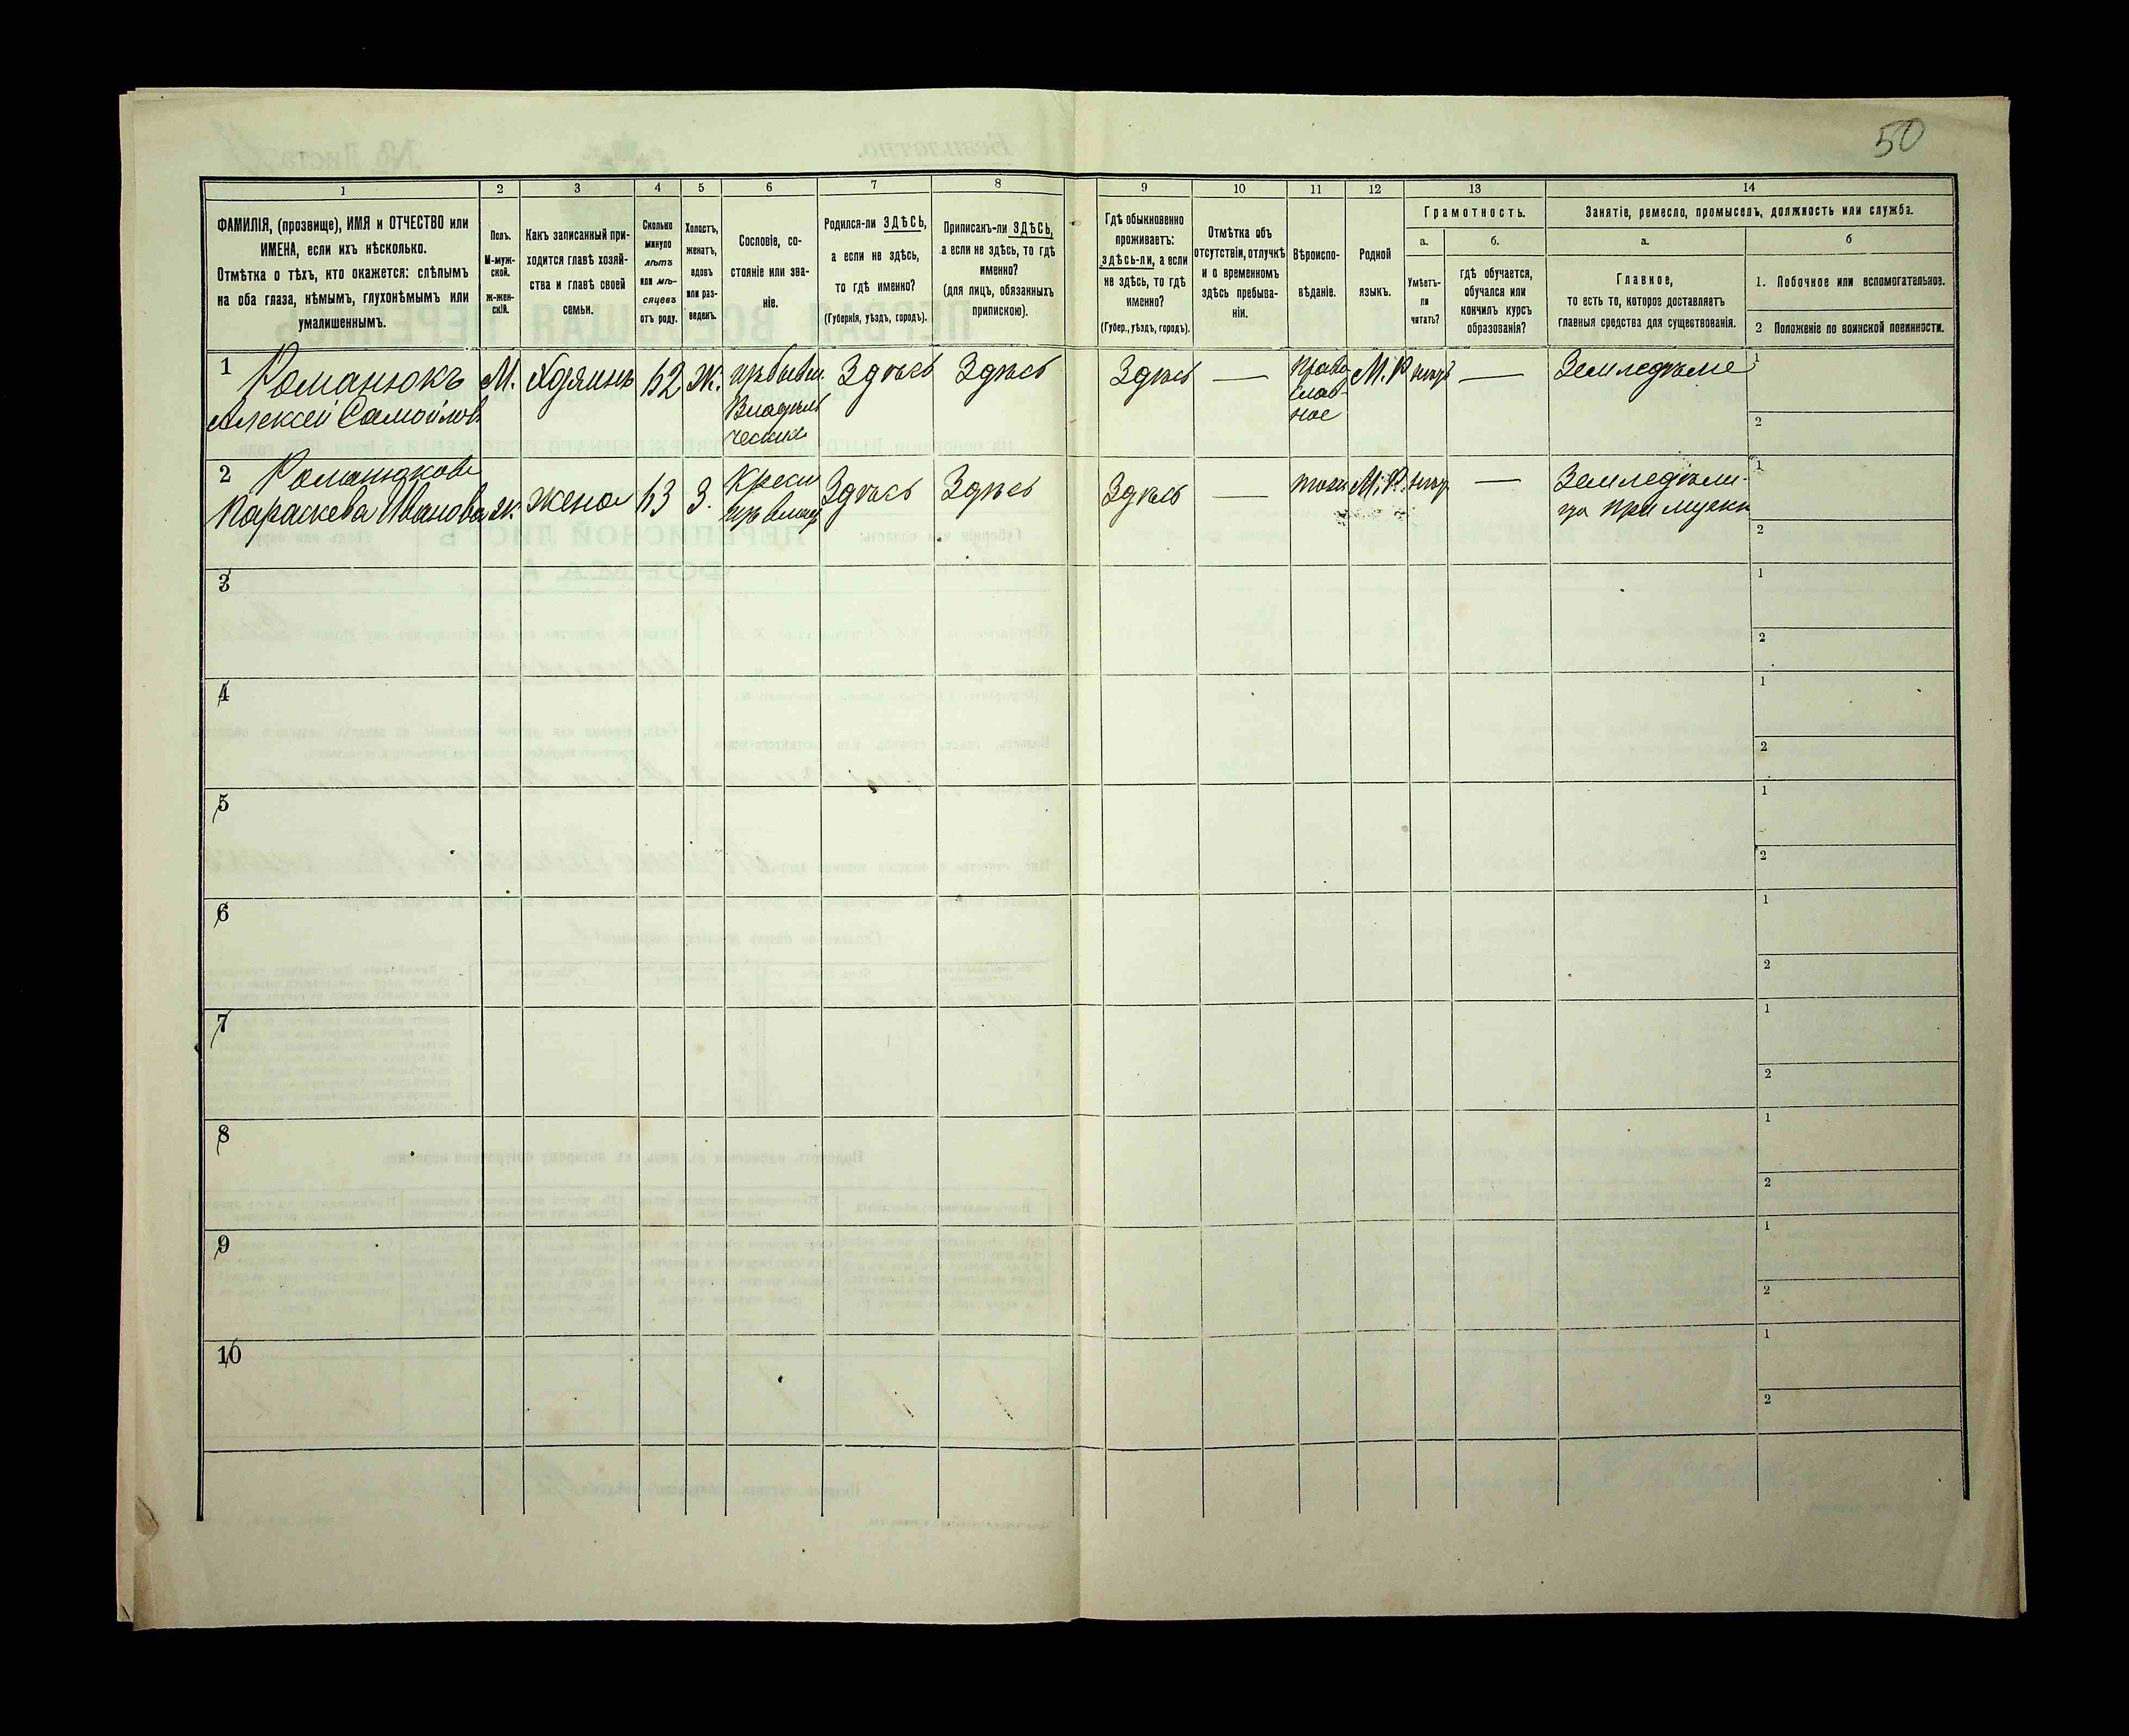 50
1 2 3 4 5 6 7 8 9 10 11 12 13 14
ФАМИЛІЯ, (прозвище), ИМЯ и ОТЧЕСТВО или
ИМЕНА, если ихъ нѣсколько.
Отмѣтка о тѣхъ, кто окажется: слѣпымъ
на оба глаза, нѣмымъ, глухонѣмымъ или
умалишеннымъ.
Полъ.
М-муж-
ской.
ж-жен-
скій.
Какъ записанный при-
ходится главѣ хозяй-
ства и главѣ своей
семьи.
Сколько
минуло
лѣтъ
или мѣ-
сяцевъ
отъ роду.
Холостъ,
женатъ,
вдовъ
или раз-
веденъ.
Сословіе, со-
стояніе или зва-
ніе.
Родился-ли ЗДѢСЬ,
а если не здѣсь,
то гдѣ именно?
(Губернія, уѣздъ, городъ).
Приписанъ-ли ЗДѢСЬ,
а если не здѣсь, то гдѣ
именно?
(для лицъ, обязанныхъ
припискою).
Гдѣ обыкновенно
проживаетъ:
здѣсь-ли, а если
не здѣсь, то гдѣ
именно?
(Губер., уѣздъ, городъ).
Отмѣтка объ
отсутствіи, отлучкѣ
и о временномъ
здѣсь пребыва-
ніи.
Вѣроиспо-
вѣданіе.
Родной
языкъ.
Грамотность.
а.
Умѣетъ-
ли
читать?
б.
гдѣ обучается,
обучался или
кончилъ курсъ
образованія?
Занятіе, ремесло, промыселъ, должность или служба.
а.
Главное,
то есть то, которое доставляетъ
главныя средства для существованія.
б
1. Побочное или вспомогательное.
2. Положеніе по воинской повинности.
1 Романюкъ М. Хозяинъ 62 Ж. Здѣсь Здѣсь Здѣсь — Право М.Р — Земледѣлие 1
Алексей Самойлов слав-
ное
2
2 Романюкова
Параскева Иванова ж. жена 63 З. Крест Здѣсь Здѣсь Здѣсь — М.Р. — Земледѣли- 1
при мужи
2
3 1
2
4 1
2
5 1
2
6 1
2
7 1
2
8 1
2
9 1
2
10 1
2